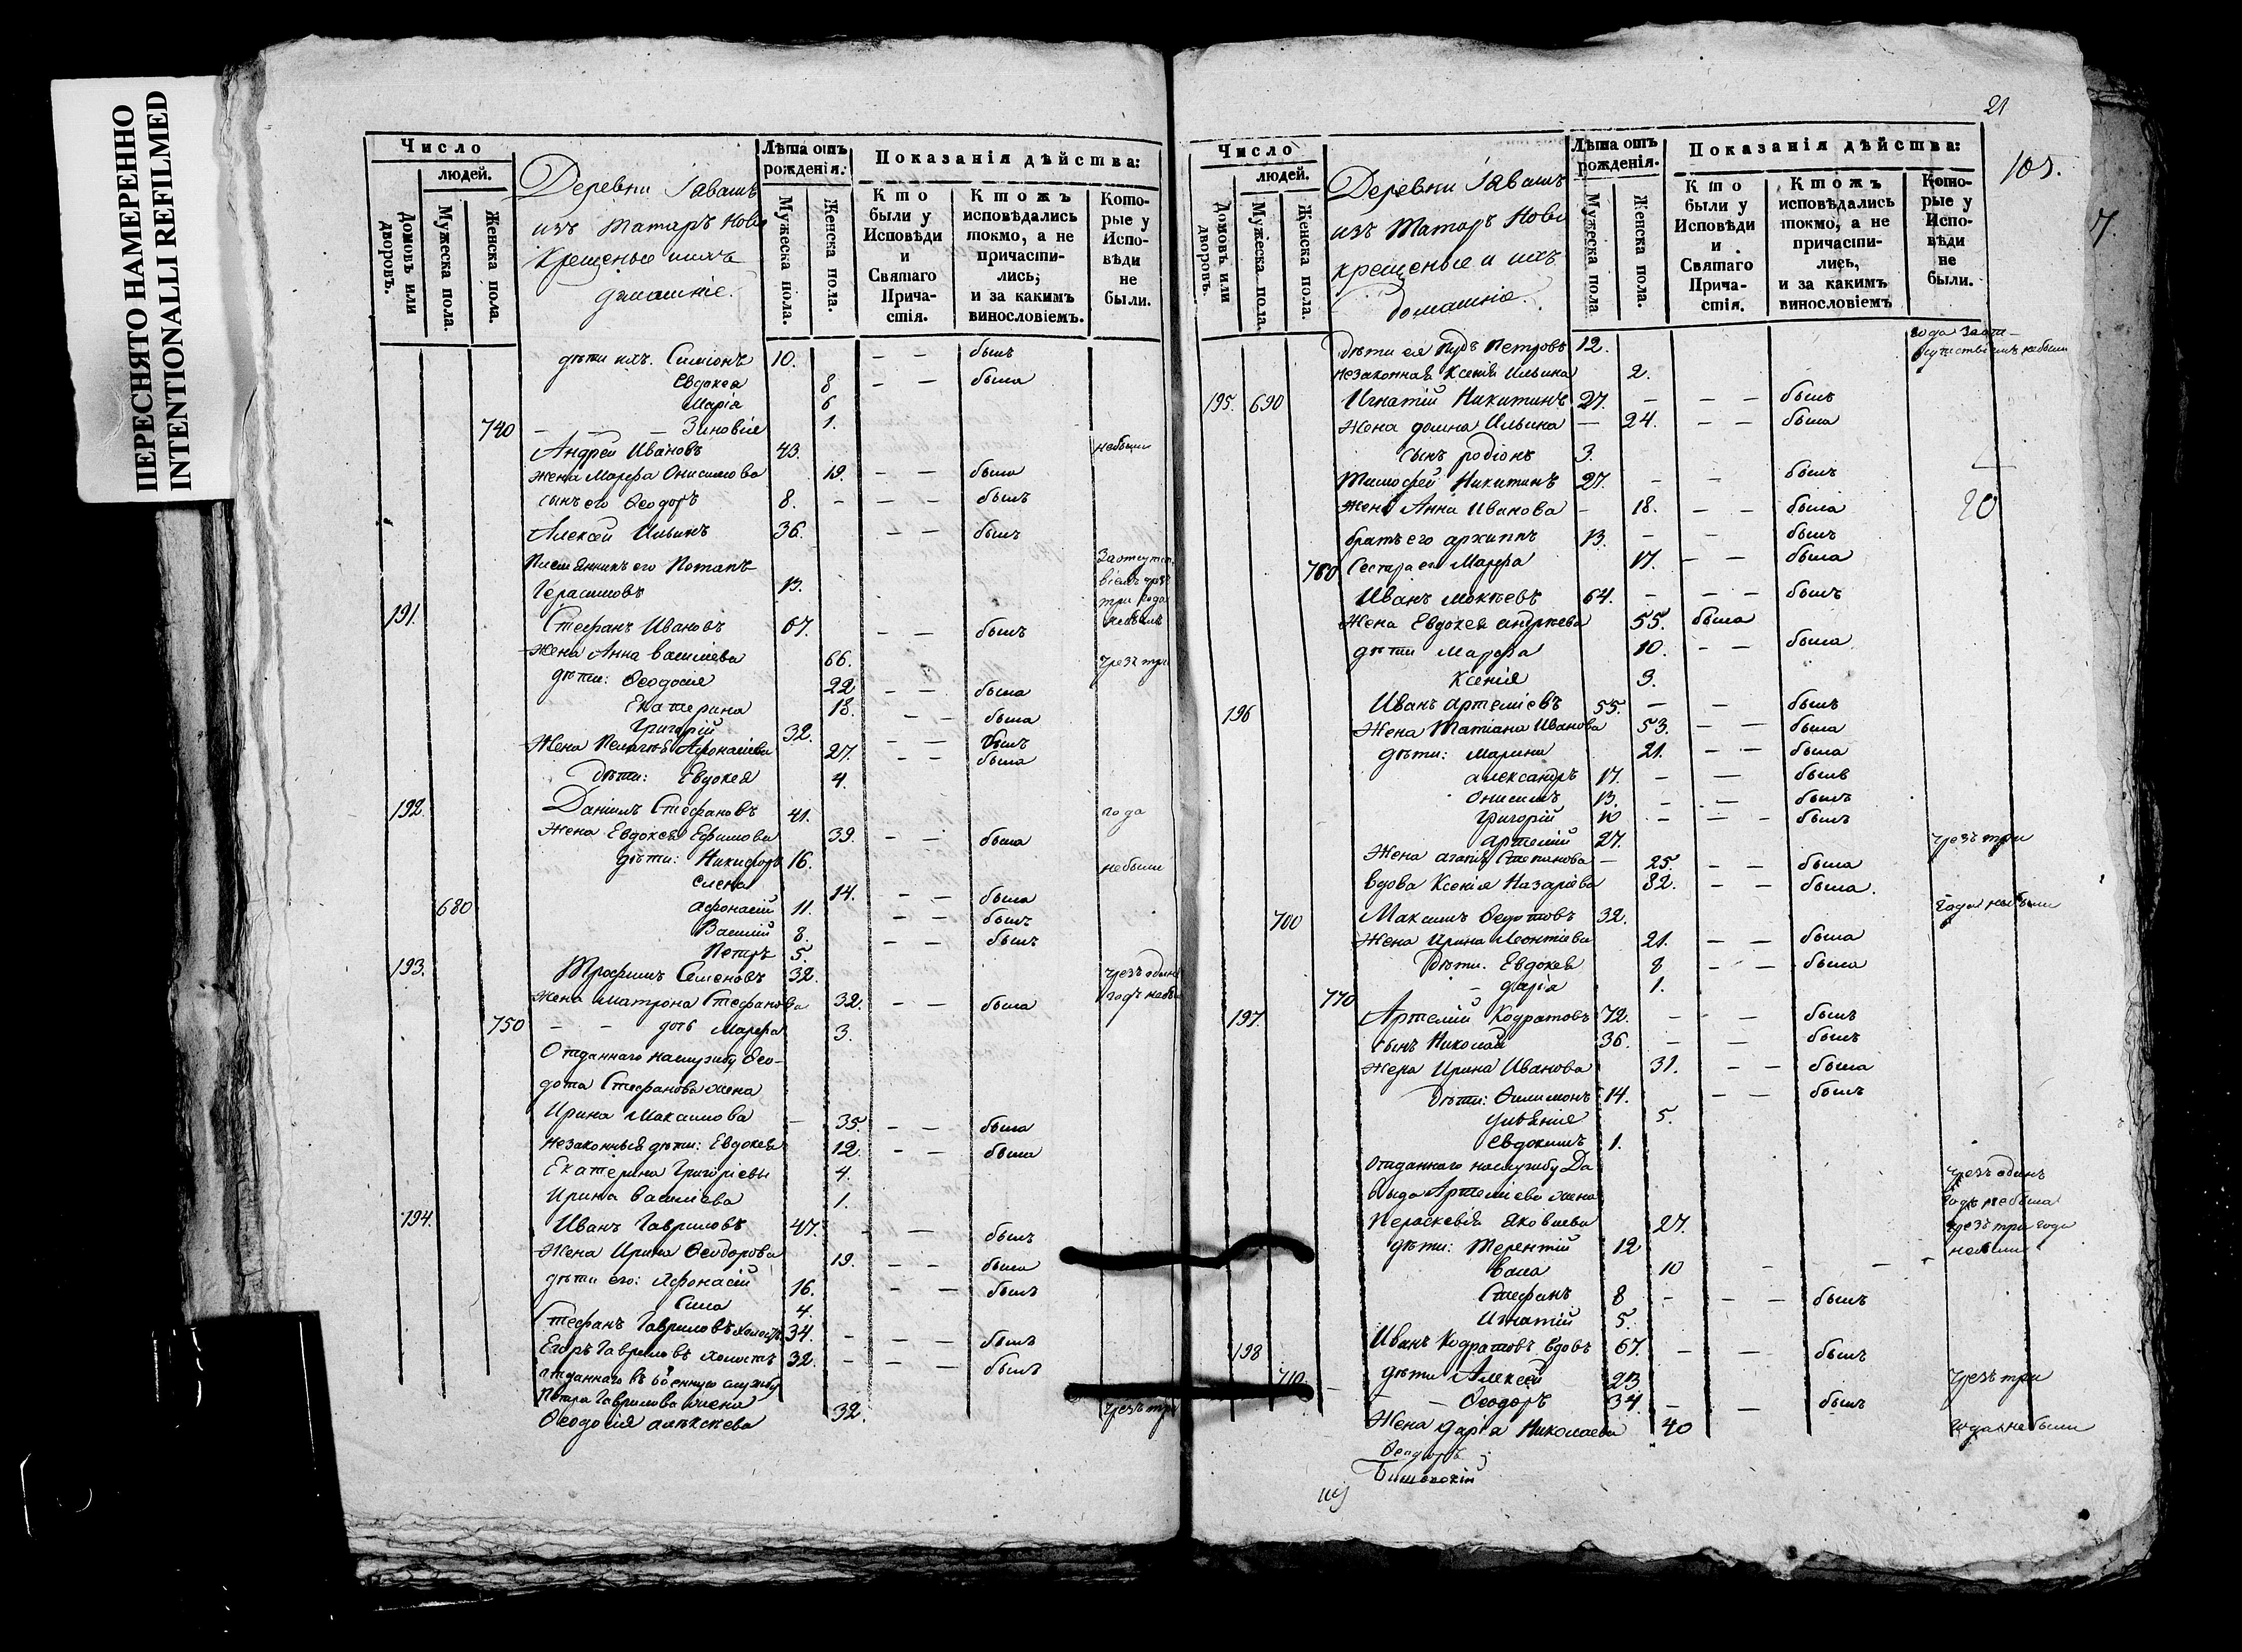 ПЕРЕСНЯТО НАМЕРЕННО
INTENTIONALLI REFILMED
Число
людей.
Домовъ или дворовъ.
Мужеска пола.
Женска пола.
Деревни
изъ Татаръ Ново
Крещеные ихъ
домашніе.
Лѣта отъ рожденія.
Мужеска пола.
Женска пола.
Показанія дѣйства:
Кто были у Исповѣди и Святаго Причастія.
Ктожъ исповѣдались токмо, а не причастились, и за какимъ винословіемъ.
Которые у Исповѣди не были.
дѣти ихъ. Симіонъ 10. — — былъ
Евдокея 8 — — была
Марія 6
740 — — — Зиновія 1.
Андрей Ивановъ 43. небыли
жена Марфа Онисимова 19. — — была
сынъ его Ѳеодоръ 8. — — — былъ
Алексей Ильинъ 36. — — былъ
Племянникъ его Потапъ
Герасимовъ 13.
три года
191. Стефанъ Ивановъ 67. — — былъ
жена Анна Василіева 66. чрезъ три
дѣти: Ѳеодосия 22 — — была
Екатерина 18. — — была
Григорій 32. — — былъ
Жена Пелагѣя Афонасіева 27. — — была
дѣти: Евдокея 4.
192. Даніилъ Стефановъ 41. года
Жена Евдокея Ефимова 39. — — была
дѣти: Никифоръ 16. небыли
Елена 14. — — была
680 Афонасій 11. — — былъ
Василій 8. — — былъ
Петръ 5.
193. Трофимъ Семеновъ 32. чрезъ одинъ
Жена Матрона Стефанова 32. — — была годъ небы
750 — — дочь Марфа 3.
Отданнаго наслужбу Ѳео-
дота Стефанова жена
Ирина Максимова — 35. — — была
незаконныя дѣти: Евдокея 12. — — была
Екатерина Григоріевы 4.
Ирина Василіева 1.
194. Иванъ Гавриловъ 47. — — былъ
Жена Ирина Ѳеодорова 19. — — была
дѣти его: Афонасій 16. — — былъ
Сила 4.
Стефанъ Гавриловъ холостъ 34. — — — былъ
Егоръ Гавриловъ холостъ 32. — — — былъ
отданнаго въ военную службу
Петра Гаврилова жена
Ѳеодосія алѣксѣева 32. чрезъ три
21
105.
7.
20
Число
людей.
Домовъ или дворовъ.
Мужеска пола.
Женска пола.
Деревни
изъ Татаръ Ново
крещеные и ихъ
домашніе.
Лѣта отъ рожденія.
Мужеска пола
Женска пола.
Показанія дѣйства:
Кто были у Исповѣди и Святаго Причастія.
Ктожъ исповѣдались токмо, а не причастились, и за какимъ винословіемъ
Которые у Исповѣди не были.
дѣти ея Петровъ 12.
незаконная Ксенія Ильина 2.
195. 690 Игнатій Никитинъ 27. — — — былъ
Жена домна Ильина — 24. — — была
сынъ родіонъ 3.
Тимофей Никитинъ 27. — — былъ
жена Анна Иванова — 18. — — была
братъ его архиппъ 13. — — былъ
760 Сестра его Марфа 17. — — была
Иванъ мокѣевъ 64. — — — былъ
Жена Евдокея андрѣева 55. была
дѣти Марфа 10. — — была
Ксенія 3.
196 Иванъ артеміевъ 55. — — былъ
Жена Татіана Иванова 53. — — была
дѣти: Марина 21. — — была
александръ 17. — — былъ
Онисимъ 13. — — былъ
Григорій 10 — — — былъ
артемій 27. чрезъ три
жена Степанова — 25. — — была
вдова Ксенія Назаріева 82. — — была.
700 Максимъ Ѳедотовъ 32. года небыли
жена Ирина Леонтіева 21. — — была
дѣти. Евдокея 8 — — была
770 — дарія 1.
197. Артемій Кодратовъ 72. — — — былъ
сынъ Николай 36. — — былъ
жена Ирина Иванова 31. — — была
дѣти: Филимонъ 14. — — былъ
5.
Евдокимъ 1.
отданнаго наслужбу Да чрезъ одинъ
выда Артеміева жена годъ небыла
Параскевія Яковлева 27. чрезъ три года
дѣти: Терентій 12 небыли
10 — —
Стефанъ 8 — — — былъ
Игнатій 5.
198 Иванъ Кодратовъ вдовъ 67. — — былъ
710. дѣти Алексей 23 чрезъ три
— Ѳеодоръ 34 — — былъ
Жена дарія Николаева 40 года небыли
Ѳеодоръ